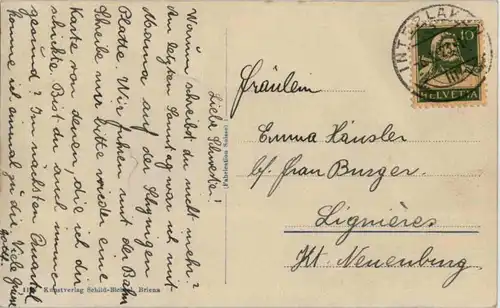 Liebe Schwester!
Warum schreibst du nicht mehr?
Am letzten Sonntag war ich mit
Mama auf der Schynigen
Platte. Wir fuhren mit der Bahn
Schreibe mir bitte wieder eine
Karte von denen, die ich dir
schickte. Bist du auch immer
gesund? Im nächsten Quartal
komme ich einmal zu dir. Viele Grüsse
INTERLAKEN
10
HELVETIA
Fräulein
Emma Häusler
b/. Frau Burger.
Lignières
Kt. Neuenburg
Kunstverlag Schild-Bichsel, Brienz